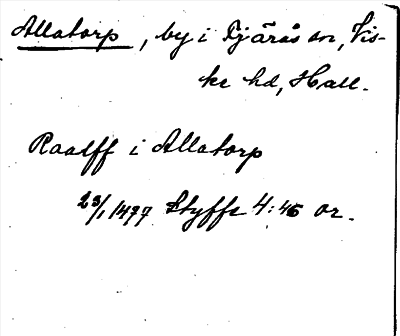 Allatorp, by i Tjärås sn, Vis-
ke hd, Hall.
Raalff i Allatorp
23/1 1477 Styffe 4:45 or.